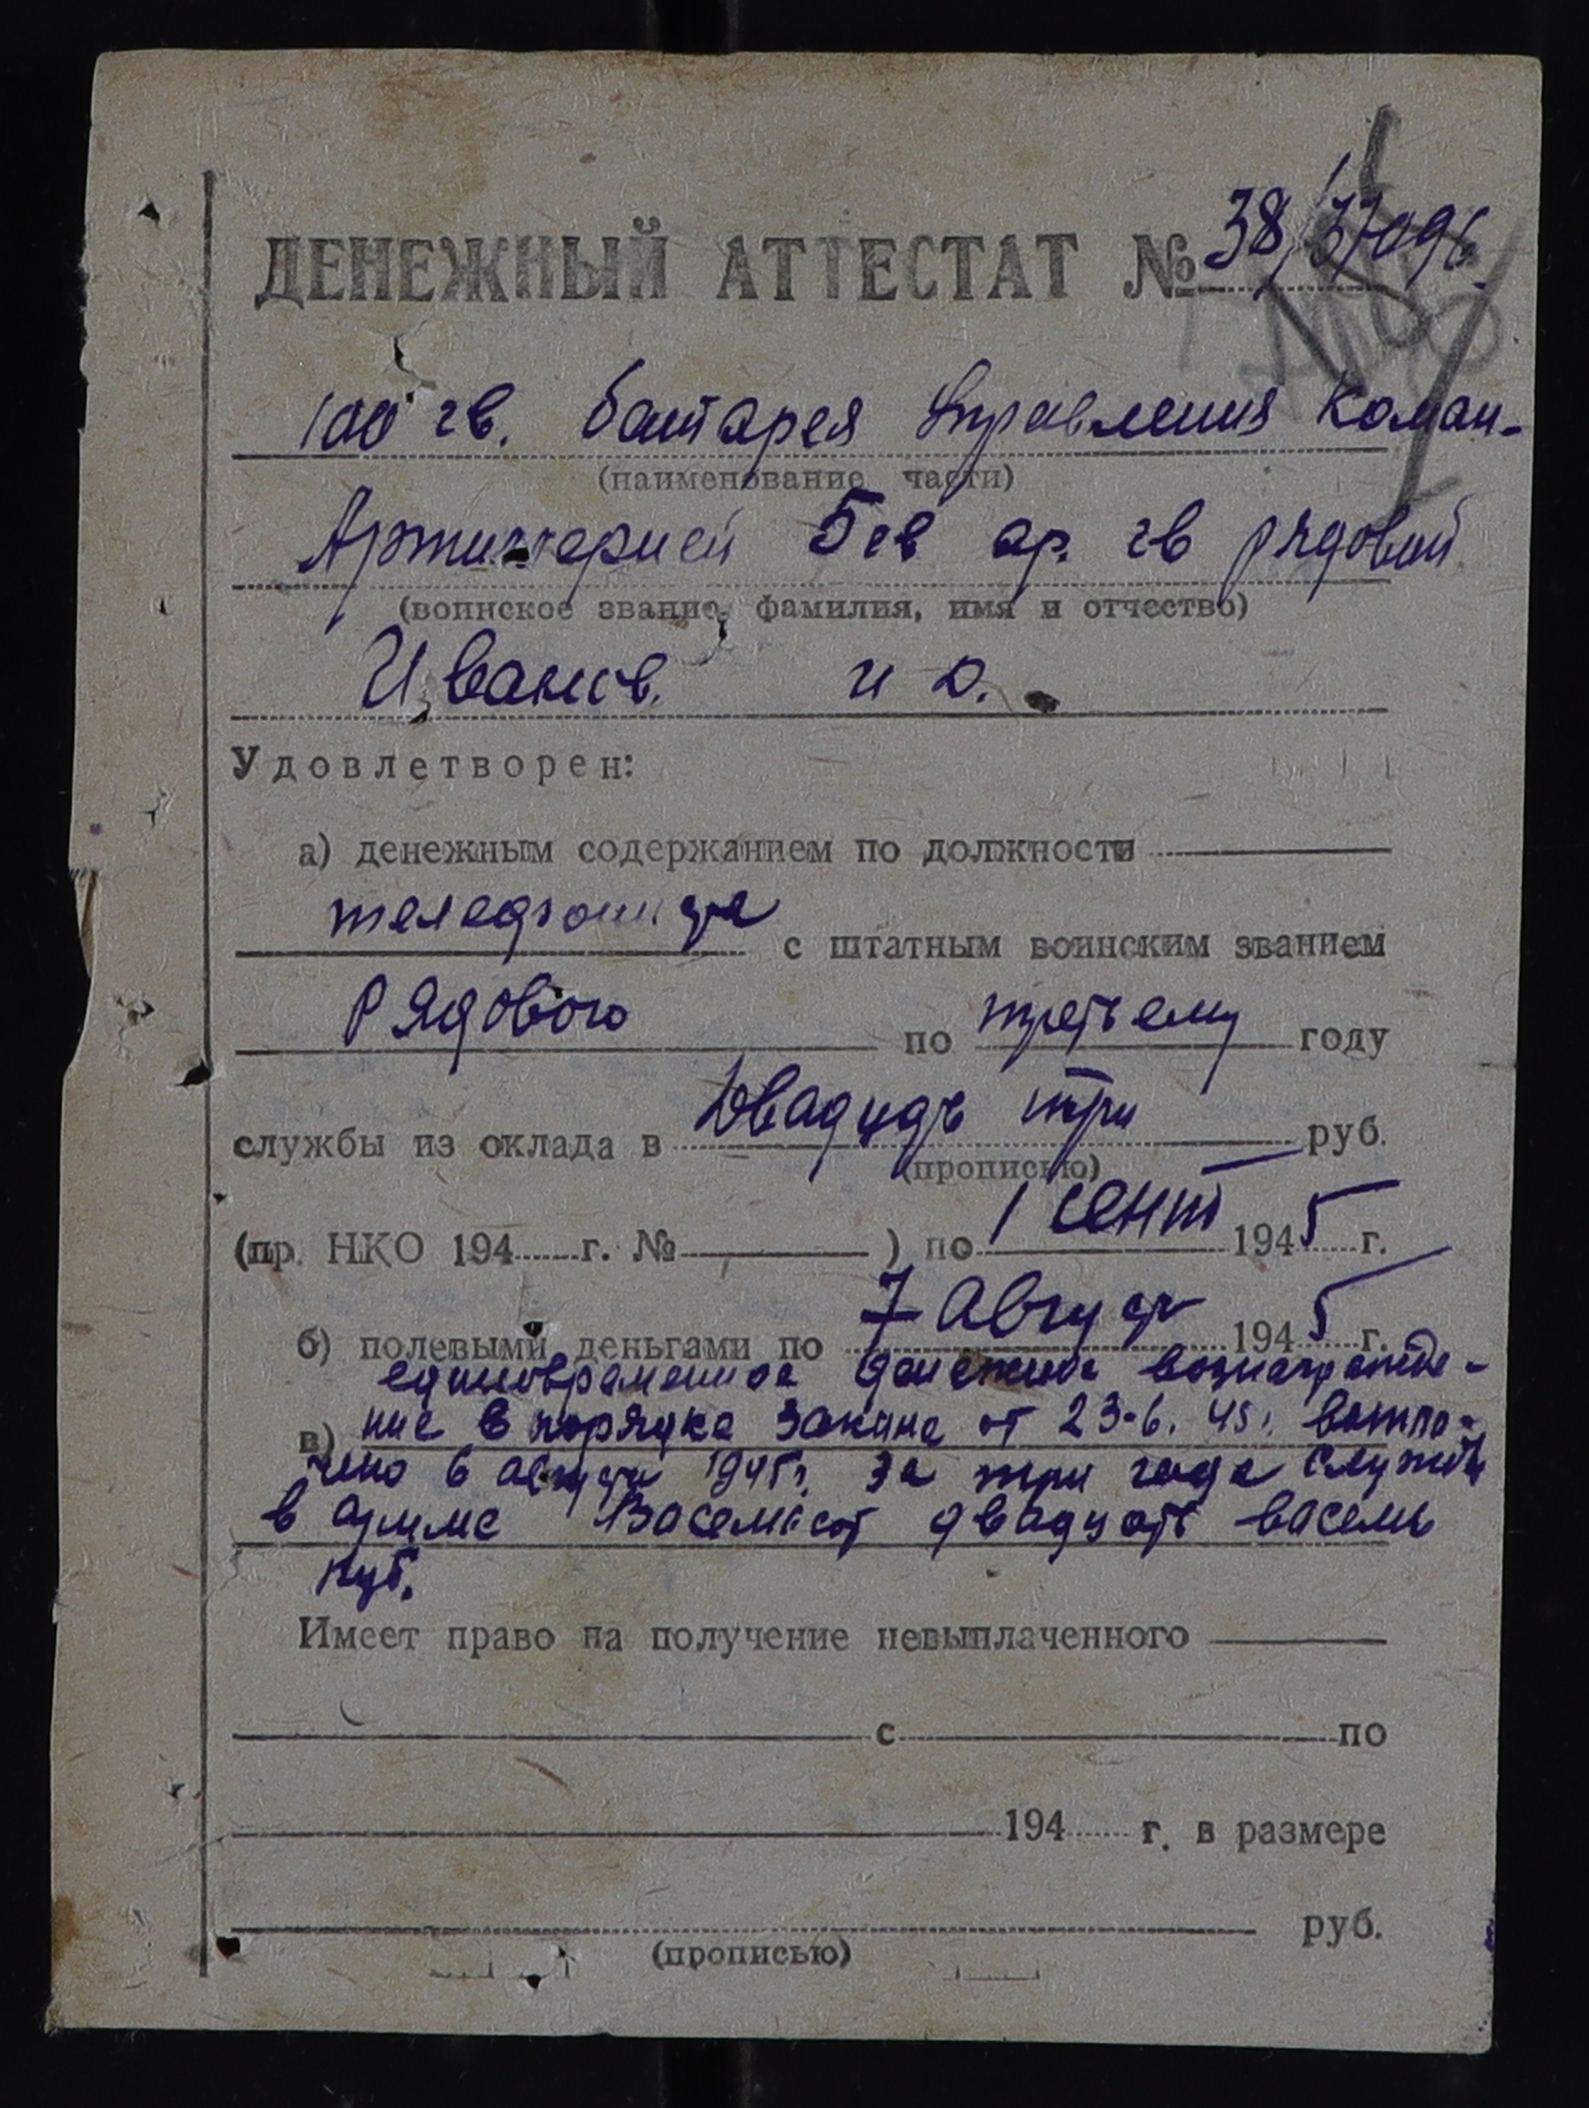 ДЕНЕЖНЫЙ АТТЕСТАТ № 38/37096
100 гв. батарея управления коман-
(наименование части)
Артиллерией 5 гв ар. гв рядовый
(воинское звание, фамилия, имя и отчество)
Иванов. и д.
Удовлетворен:
а) денежным содержанием по должности
телефониста
с штатным воинским званием
Рядового по третьему году
службы из оклада в Двадцадь три руб.
(прописью)
(пр. НКО 194 г. № ) по 1 сент 1945 г.
б) полевыми деньгами по 7 Август 1945 г.
единовременное денежное вознагражде-
в) ние в порядке закана от 23.6.45. выпла-
чено в августе 1945г. за три года службы
в армие Васемьсот двадцать васемь
руб.
Имеет право на получение невыплаченного
с по
194 г. в размере
руб.
(прописью)